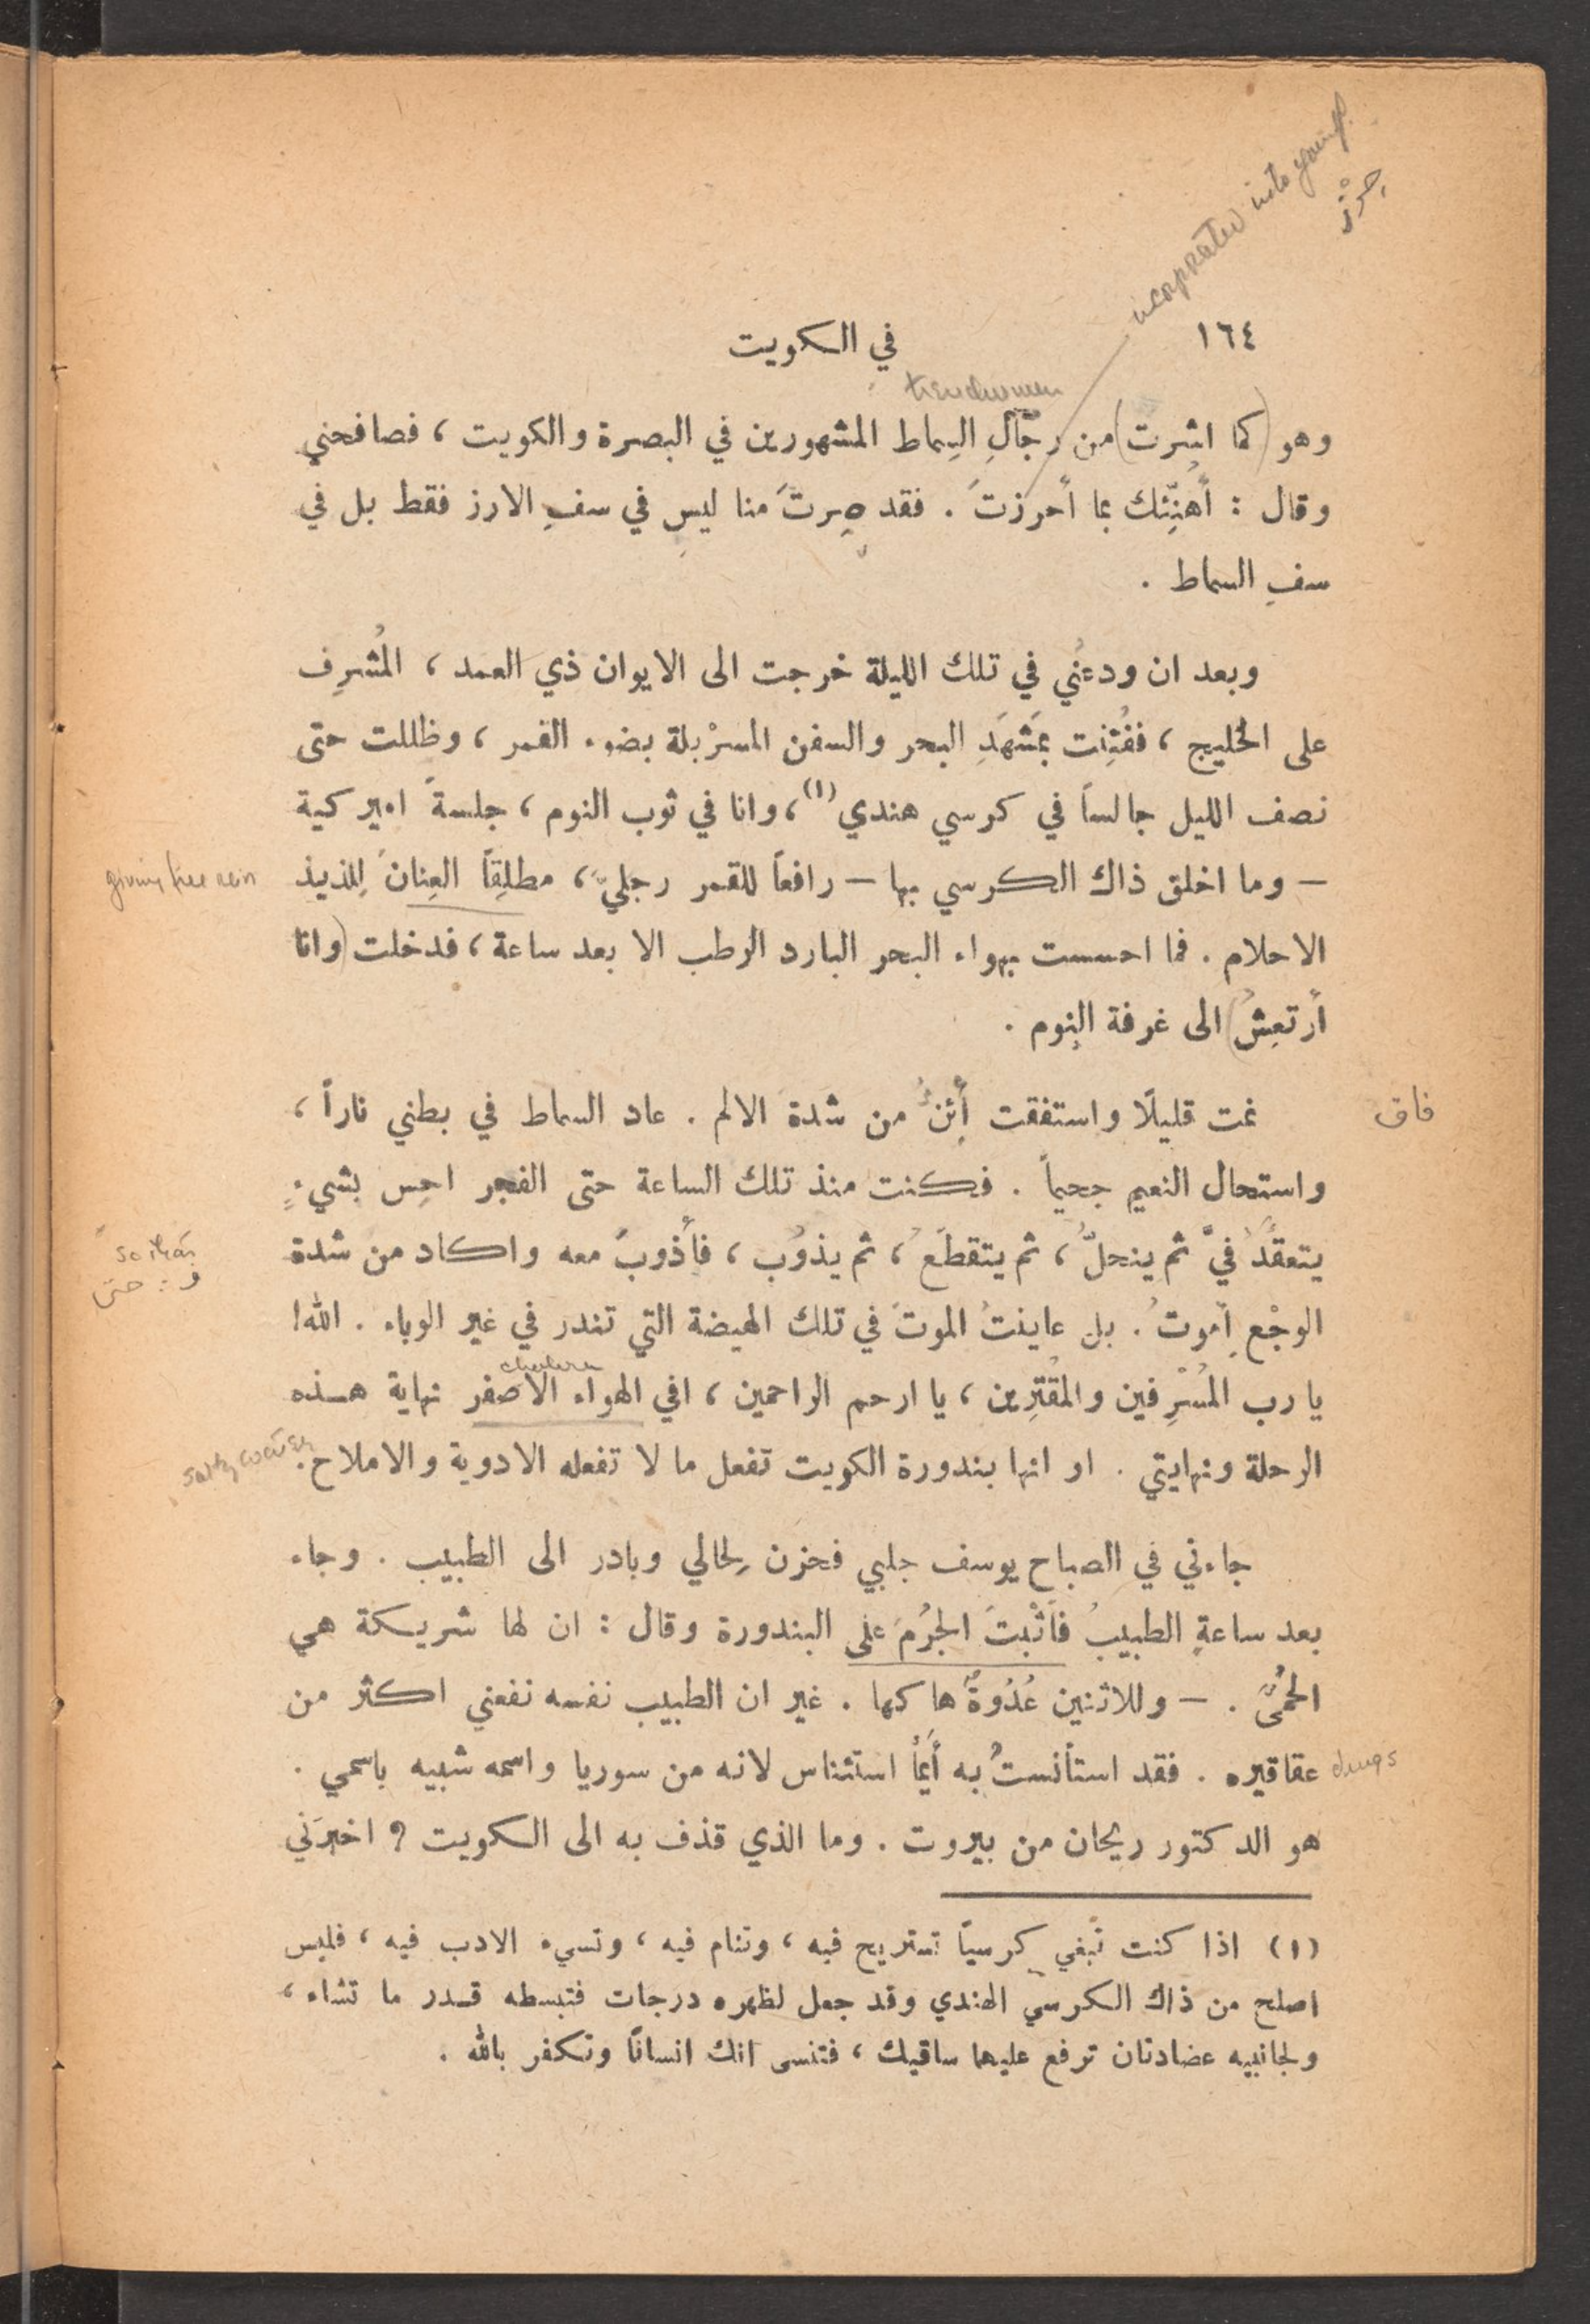 incorporated into
حِرْز
١٦٤ في الكويت
وهو (كما اشرت) من رجّالِ السِماط المشهورين في البصرة والكويت ، فصافحني
وقال : أُهنِّئك بما أحرزتَ . فقد صِرتَ منا ليس في سفِ الارز فقط بل في
سفِ السماط .
وبعد ان ودعني في تلك الليلة خرجت الى الايوان ذي العمد ، المُشرِف
على الخليج ، ففُتِنت بمَشهَدِ البحر والسفن المسرْبلة بضوء القمر ، وظللت حتى
نصف الليل جالساً في كرسي هندي (١) ، وانا في ثوب النوم ، جلسةً اميركية
giving free rein
— وما اخلق ذاك الكرسي بها — رافعاً للقمر رجليّ ، مطلِقاً العِنانَ لِلذيذ
الاحلام . فما احسست بهواء البحر البارد الرطب الا بعد ساعة ، فدخلت (وانا
أرتعِشُ) الى غرفة النوم .
فاق
نمت قليلًا واستفقت أَئِنُّ من شدة الالم . عاد السماط في بطني ناراً ،
واستحال النعيم جحيماً . فكنت منذ تلك الساعة حتى الفجر احِس بشيءٍ
so that
و = حتى
يتعقَّدُ فيَّ ثم ينحلُّ ، ثم يتقطَّعُ ، ثم يذوُب ، فأَذوبُ معه واكاد من شدة
الوجْعِ أموتُ . بل عاينتُ الموتَ في تلك الهيضة التي تندر في غير الوباء . الله !
cholera
يا رب المُسْرِفين والمُقْتِرِين ، يا ارحم الراحمين ، افي الهواء الاصفر نهاية هـذه
salty water
الرحلة ونهايتي . او انها بندورة الكويت تفعل ما لا تفعله الادوية والاملاح .
جاءني في الصباح يوسف جلبي فحزن لِحالي وبادر الى الطبيب . وجاء
بعد ساعةٍ الطبيبُ فأَثْبتَ الجُرْمَ على البندورة وقال : ان لها شريـكة هي
الحُمَّى . — وللاثنين عُدُوةٌ هاكها . غير ان الطبيب نفسه نفعني اكثر من
drugs
عقاقيره . فقد استأنستُ به أيَّمَا استئناس لانه من سوريا واسمه شبيه باسمي .
هو الدكتور ريحان من بيروت . وما الذي قذف به الى الكويت ؟ اخبرَني
(١) اذا كنت تبغي كرسيّاً تستريح فيه ، وتنام فيه ، وتسيء الادب فيه ، فليس
اصلح من ذاك الكرسي الهندي وقد جعل لظهره درجات فتبسطه قـدر ما تشاء ،
ولجانبيه عضادتان ترفع عليهما ساقيك ، فتنسى انك انسانًا وتكفر بالله .